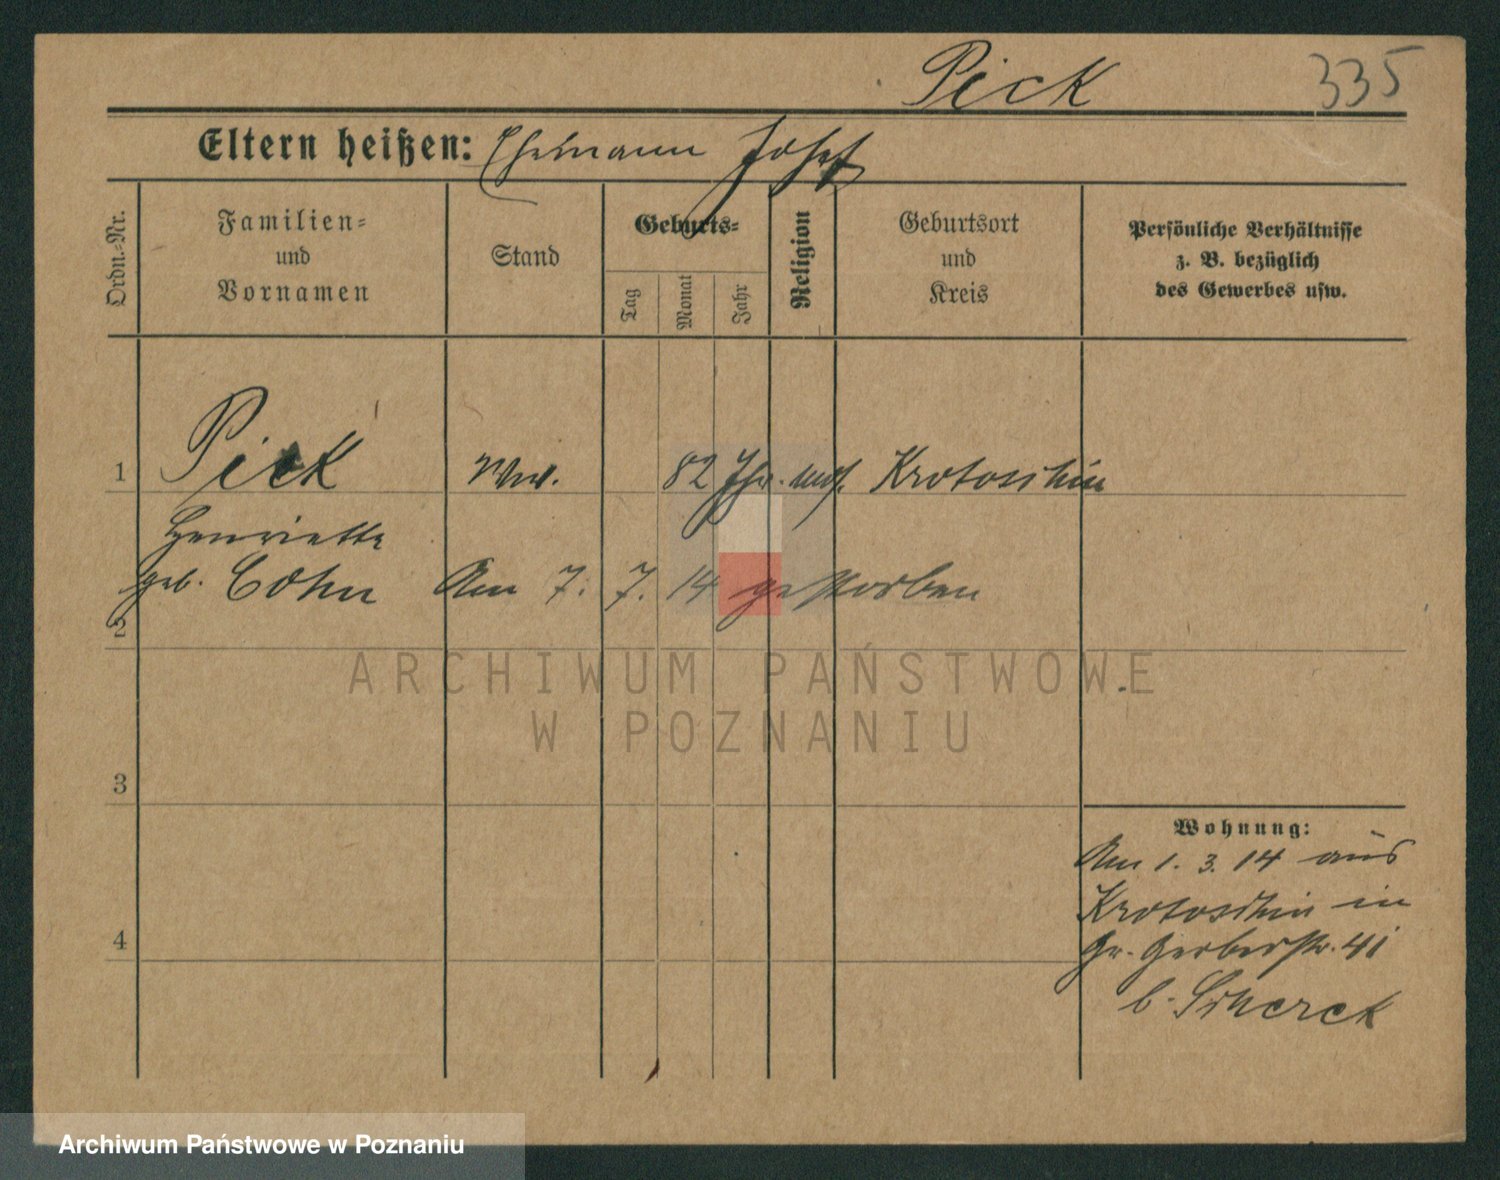 Pick 335
Eltern heißen: Ehemann Josef
Ordn.-Nr.
Familien-
und
Vornamen
Stand
Geburts-
Tag
Monat
Jahr
Religion
Geburtsort
und
Kreis
Persönliche Verhältnisse
z. B. bezüglich
des Gewerbes usw.
1 Pick Ww. 82 Jhr. mos. Krotoschin
Henriette
geb. Cohn Am 7. 7. 14 gestorben
2
ARCHIWUM PAŃSTWOWE
W POZNANIU
3
Wohnung:
Am 1. 3. 14 aus
Krotoschin in
4
Gr. Gerberstr. 41
b. Scherek
Archiwum Państwowe w Poznaniu